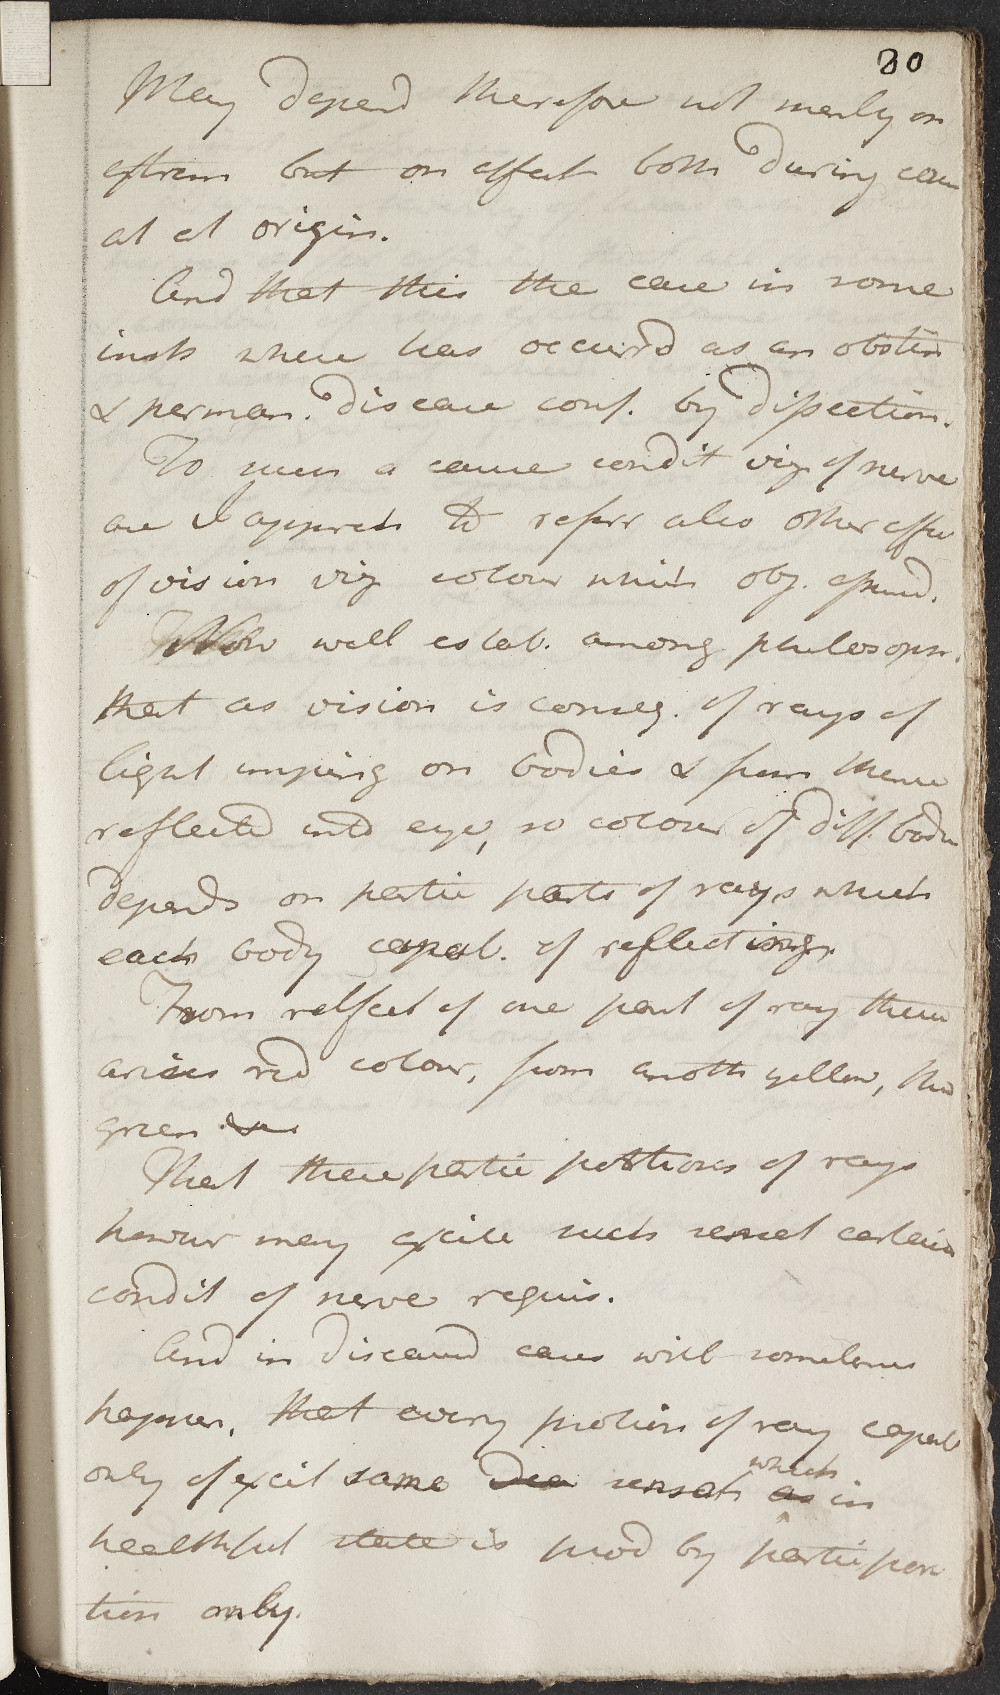 80
May depend therefore not merely on
extrem but on effect both during cou
at at origin.
And that this the case in some
insts where has occurr'd as an obstin
& perman. disease conf. by dissection.
To such a cause condit viz of nerve
are I appreh to refer also other affe
of vision viz colour which obj. assum'd.
Now well estab. among philosoph.
that as vision is conseq. of rays of
light imping on bodies & from thence
reflected into eye, so colour of diff. bodie
depends on partic parts of rays which
each body capab. of reflecting.
From relfect of one part of ray there
arises red colour, from anoth yellow, thi
green
That these partic portions of rays
howvr may excite such sensat certain
condit of nerve requis.
And in diseased cases will sometimes
happen, that every portion of ray capab
only of excit same Dea sensat which as in
healthful state is prod by partic por
tion only.